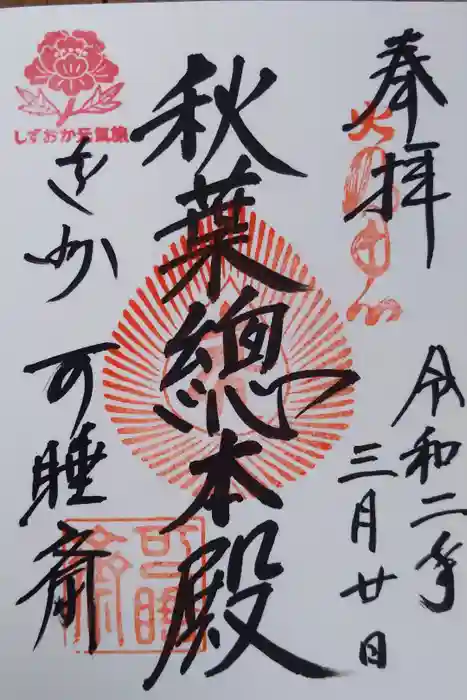 奉拝
令和二年
三月廿日
秋葉總本殿
遠州 可睡斎
しずおか元氣旅
可睡斎